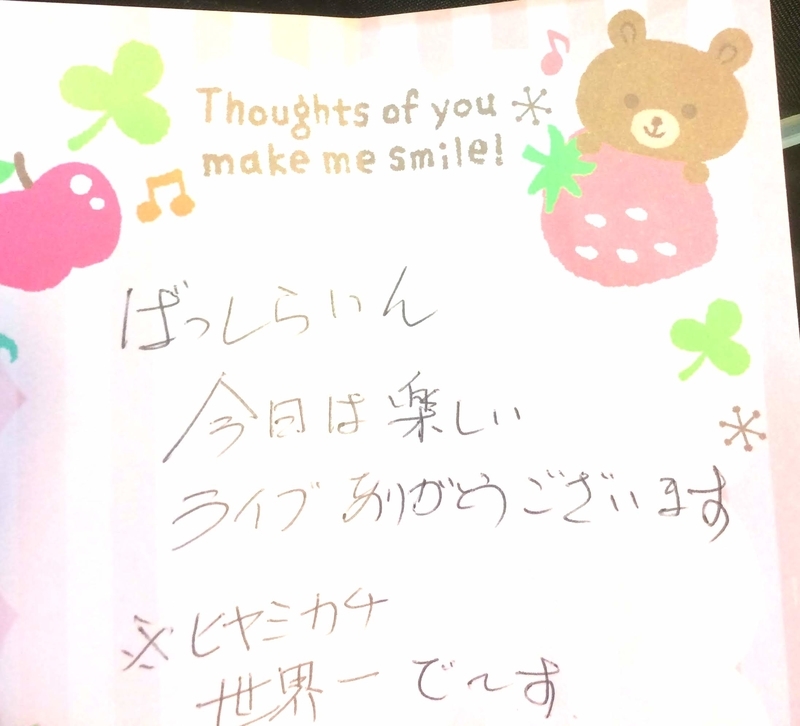 Thoughts of you
make me smile!
ばっしらいん
今日は楽しい
ライブありがとうございます
※ビヤミカチ
世界一で〜す